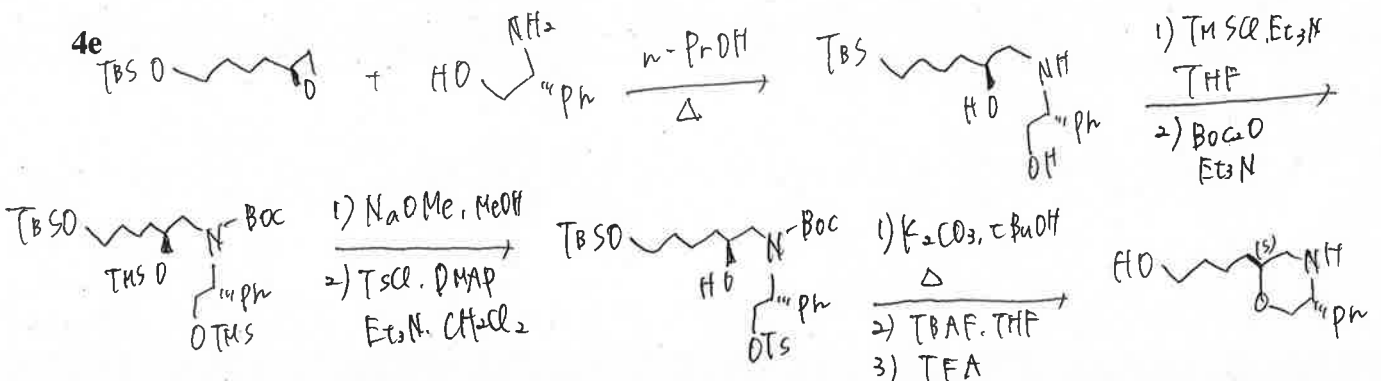 4e
TBSO O + HO NH2 Ph n-PrOH Δ TBS HO NH Ph OH 1) TMSCl, Et3N THF 2) Boc2O Et3N
TBSO TMSO N BOC Ph OTMS 1) NaOMe, MeOH 2) TsCl, DMAP Et3N, CH2Cl2 TBSO HO N Boc Ph OTs 1) K2CO3, tBuOH Δ 2) TBAF, THF 3) TFA HO (S) NH O Ph